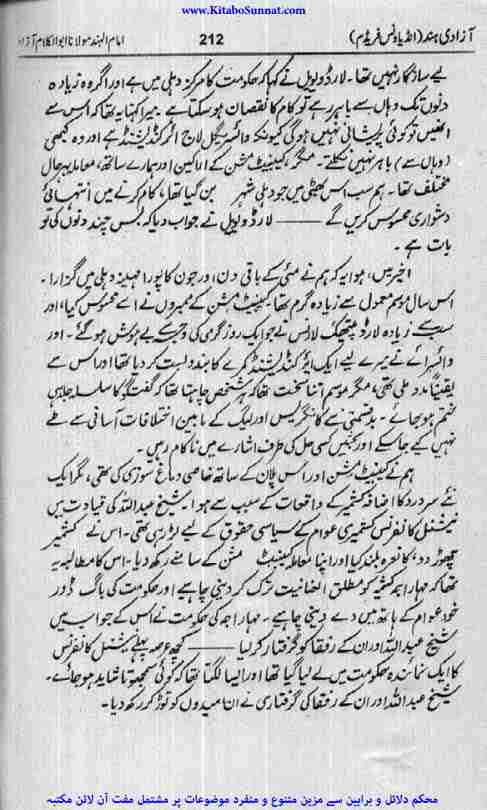 www.KitaboSunnat.com
آزادی ہند (انڈیا ونس فریڈم) 212 امام الہند مولانا ابوالکلام آزاد
لیے سازگار نہیں تھا۔ لارڈ ویول نے کہا کہ حکومت کا مرکز دہلی میں ہے اور اگر وہ زیادہ
دنوں تک وہاں سے باہر رہے تو کام کا نقصان ہو سکتا ہے۔ میرا کہنا یہ تھا کہ اس سے
انھیں تو کوئی پریشانی نہیں ہوگی کیونکہ وائسریگل لاج ائر کنڈیشنڈ ہے اور وہ کبھی
(وہاں سے) باہر نہیں نکلتے۔ مگر، کیبنیٹ مشن کے اراکین اور ہمارے ساتھ، معاملہ بہرحال
مختلف تھا۔ ہم سب اس بھٹی میں جو دہلی شہر بن گیا تھا، کام کرنے میں انتہائی
دشواری محسوس کریں گے ——— لارڈ ویول نے جواب دیا کہ بس چند دنوں کی تو
بات ہے۔
اخیر میں، ہوا یہ کہ ہم نے مئی کے باقی دن، اور جون کا پورا مہینہ دہلی میں گزارا۔
اس سال موسم معمول سے زیادہ گرم تھا۔ کیبنیٹ مشن کے ممبروں نے اسے محسوس کیا، اور
سب سے زیادہ لارڈ پیتھک لارنس نے جو ایک روز گرمی کی وجہ سے بے ہوش ہو گئے۔ اور
وائسرائے نے میرے لیے ایک ایئر کنڈیشنڈ کمرے کا بندوبست کر دیا تھا اور اس سے
یقیناً مدد ملی تھی، مگر موسم اتنا سخت تھا کہ ہر شخص چاہتا تھا کہ گفتگو کا سلسلہ جلد ہی
ختم ہو جائے۔ بدقسمتی سے کانگریس اور لیگ کے مابین اختلافات آسانی سے طے
نہیں کیے جا سکے اور بحثیں کسی حل کی طرف اشارے میں ناکام رہیں۔
ہم نے کیبنیٹ مشن اور اس پلان کے ساتھ خاصی دماغ سوزی کی تھی، مگر ایک
نئے سردرد کا اضافہ کشمیر کے واقعات کے سبب سے ہوا۔ شیخ عبداللہ کی قیادت میں
نیشنل کانفرنس کشمیری عوام کے سیاسی حقوق کے لیے لڑ رہی تھی۔ اس نے "کشمیر
چھوڑ دو" کا نعرہ بلند کیا اور اپنا معاملہ کیبنیٹ مشن کے سامنے رکھ دیا۔ اس کا مطالبہ یہ
تھا کہ مہاراجہ کشمیر کو مطلق العنانیت ترک کر دینی چاہیے اور حکومت کی باگ ڈور
خود عوام کے ہاتھ میں دے دینی چاہیے۔ مہاراجہ کی حکومت نے اس کے جواب میں
شیخ عبداللہ اور ان کے رفقا کو گرفتار کر لیا ——— کچھ عرصہ پہلے نیشنل کانفرنس
کا ایک نمائندہ حکومت میں لے لیا گیا تھا اور ایسا لگتا تھا کہ کوئی سمجھوتا شاید ہو جائے۔
شیخ عبداللہ اور ان کے رفقا کی گرفتاری نے ان امیدوں کو توڑ کر رکھ دیا۔
محکم دلائل و براہین سے مزین متنوع و منفرد موضوعات پر مشتمل مفت آن لائن مکتبہ